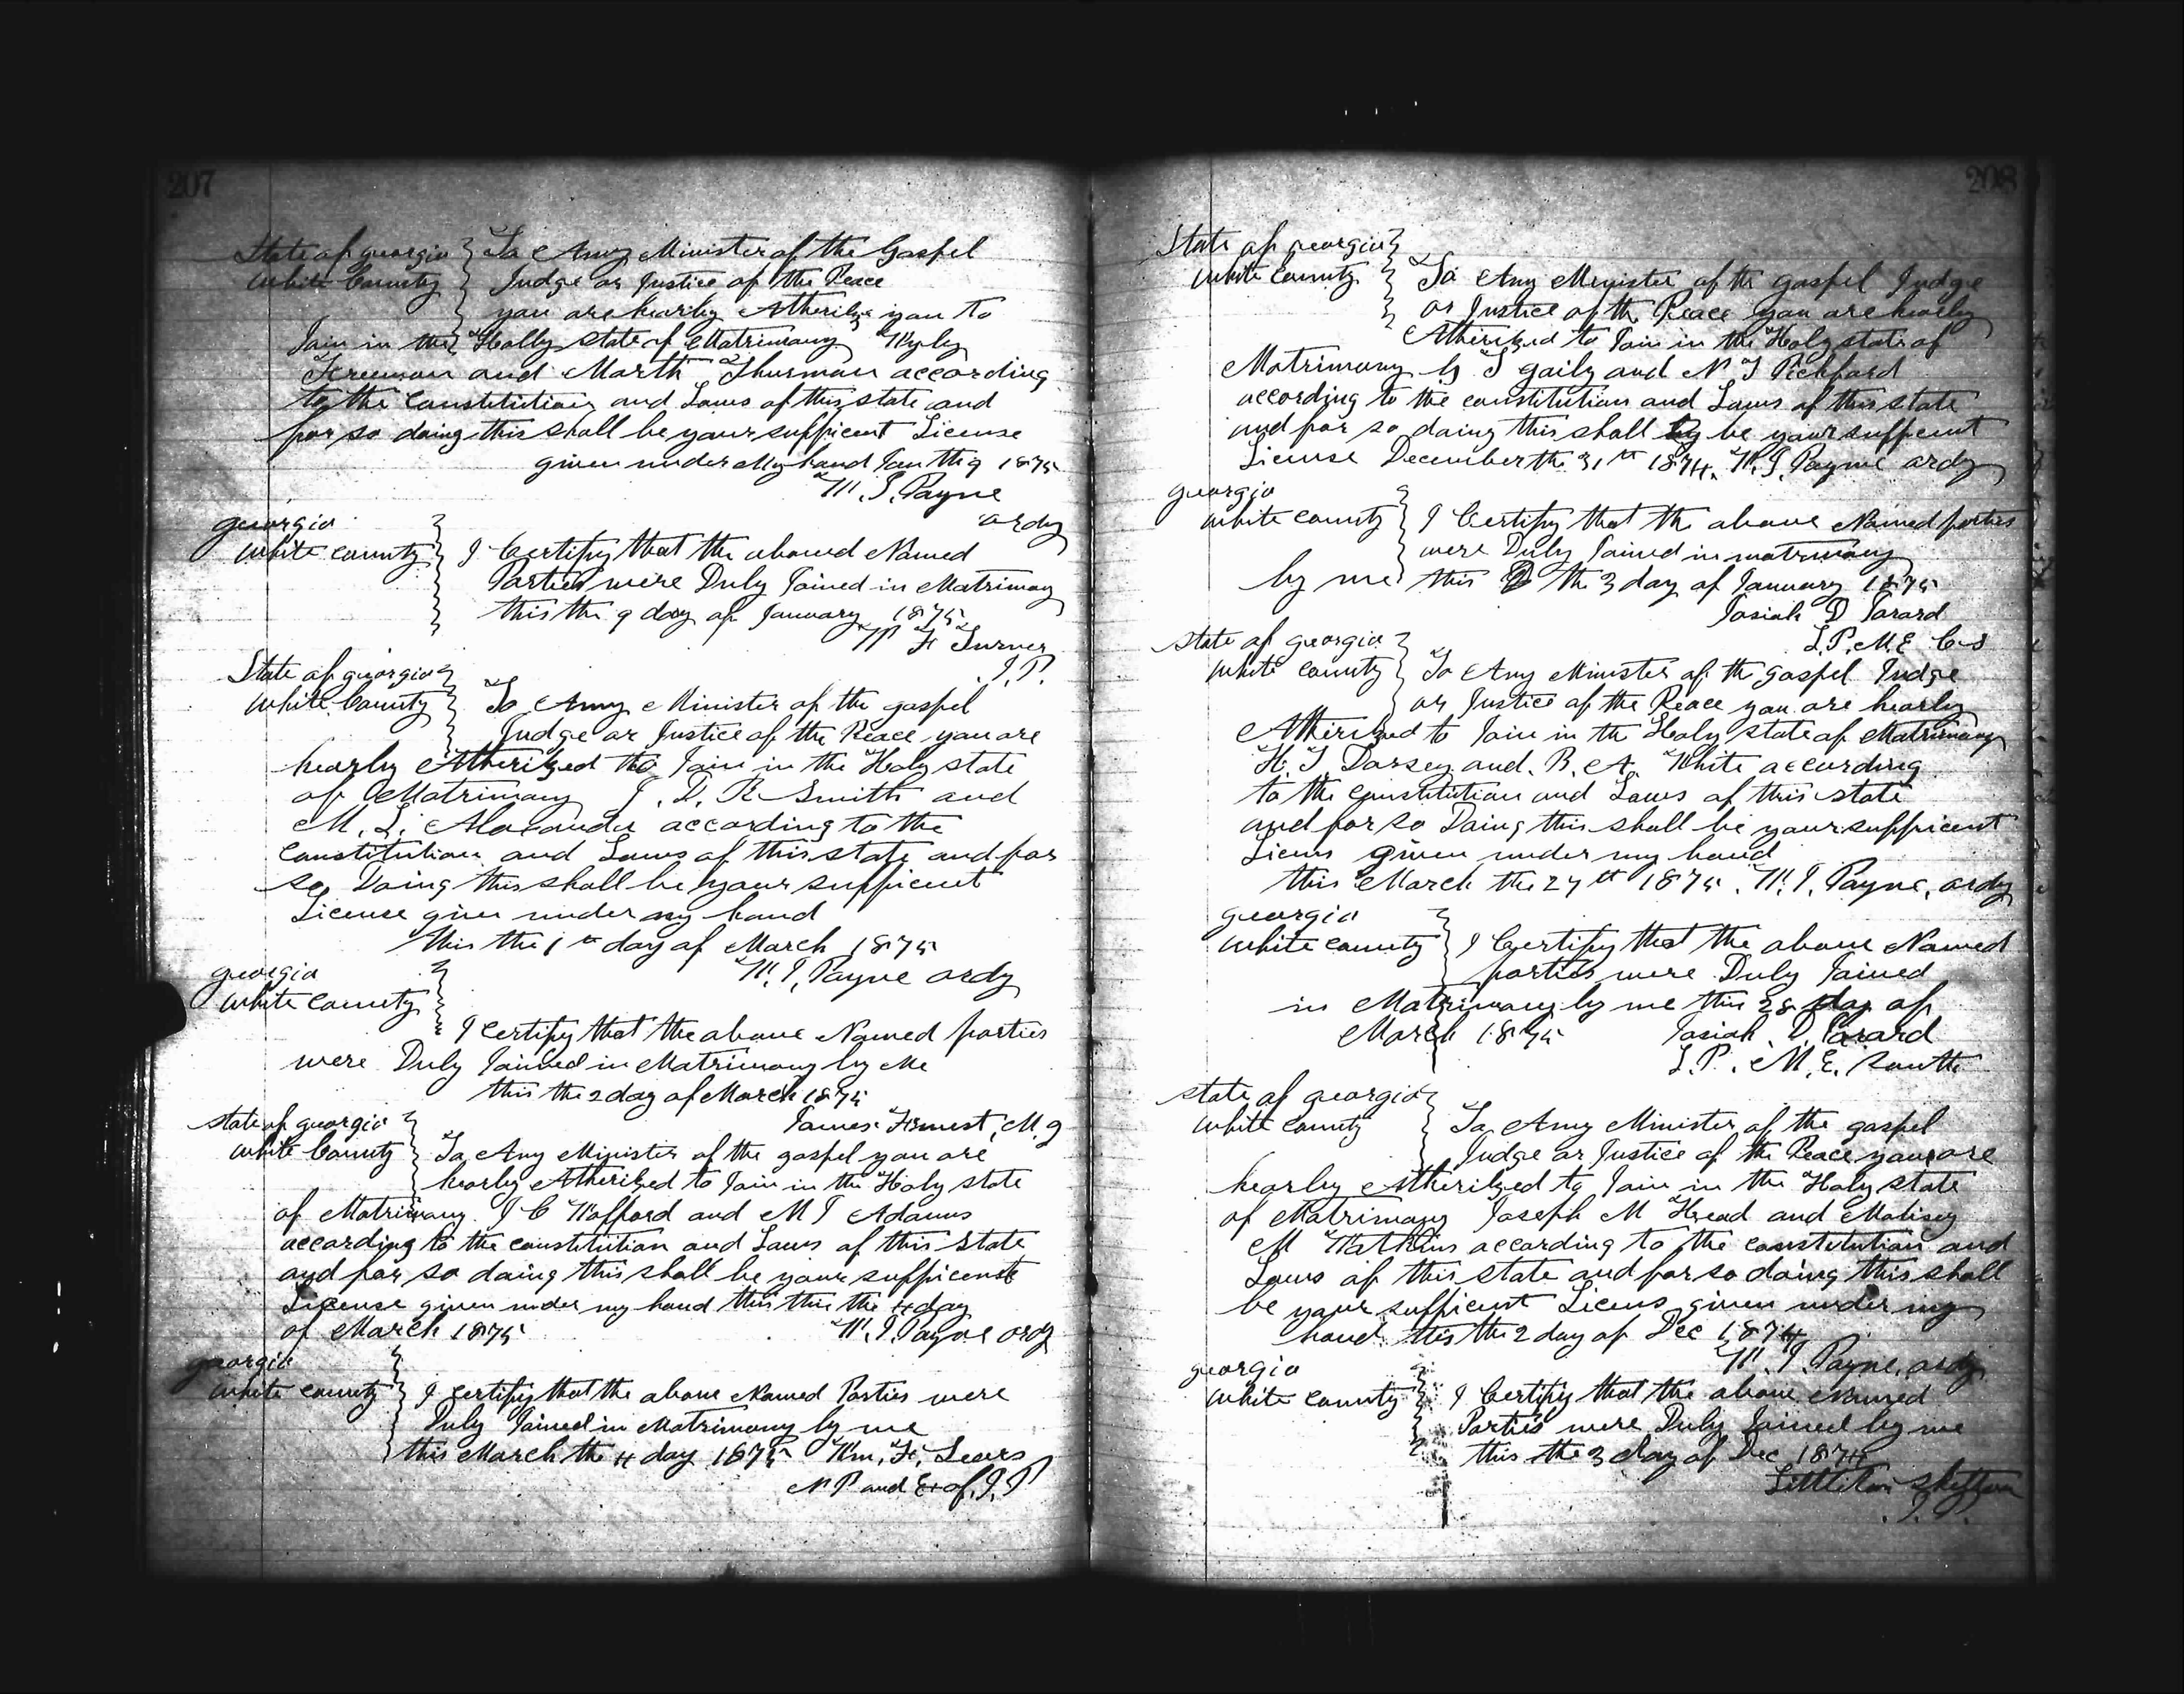 207
State of georgia To Any Minister of the Gospel
White County Judge or Justice of the Peace
you are hearby Atherize you to
Join in the Holly state of Matrimony Wyly
Freeman and Marth Thurman according
to the Constitution and Laws of this state and
for so doing this shall be your sufficent License
given under My hand Jan the 9 1875
W. J. Payne
ordy
georgia
White county I Certify that the aboved Named
Parties were Duly Joined in Matrimony
this the 9 day of January 1875
F Turner
J. P.
State of georgia
White County To Any Minister of the gospel
Judge or Justice of the Peace you are
hearby Atherized to Join in the Holy state
of Matrimony J. R. Smith and
M. L. Alaxander according to the
Constitution and Laws of this state and for
so Doing this shall be your sufficient
License given under my hand
this the 1st day of March 1875
W. J. Payne ordy
georgia
White County
I Certify that the above Named parties
were Duly Joined in Matrimony by Me
this the 2 day of March 1875
James M. g
state of georgia
White County To Any Minister of the gospel you are
hearby Atherized to Join in the Holy state
of Matrimony J C Wofford and M T Adams
according to the constitution and Laws of this State
and for so doing this shall be your sufficenst
License given under my hand this this the 4 day
of March 1875 W. J. Payne ordy
georgia
White county I Certify that the above Named Parties were
Duly Joined in Matrimony by me
this March the 4 day 1875 Wm, H, Sears
N P and Ex of. J. P
208
State of georgia
White County To Any Minister of the gospel Judge
or Justice of the Peace you are hearby
Atherized to Join in the Holy state of
Matrimony G T gaily and N J Pickford
according to the constitution and Laws of this state
and for so doing this shall be your sufficent
License December the 31st 1874. W. J. Payne ordy
georgia
White county I Certify that the above Named parties
were Duly Joined in matrimony
by me this the 3 day of January 1875
Josiah D
L. P. M. E.
State of georgia
White County To Any Minister of the gospel Judge
or Justice of the Peace you are hearby
Atherized to Join in the Holy state of Matrimony
H. J Dorsey and B. A. White according
to the constitution and Laws of this state
and for so Doing this shall be your sufficient
Licens given under my hand
this March the 27th 1875. W. J. Payne, ordy
georgia
White county I Certify that the above Named
parties were Duly Joined
in Matrimony by me this 28 day of
March 1875 Josiah D.
L. P. M. E. South
state of georgia
White County To Any Minister of the gospel
Judge or Justice of the Peace you are
hearby Atherized to Join in the Holy state
of Matrimony Joseph M Head and Malisey
M Watkins according to the constitution and
Laws of this state and for so doing this shall
be your sufficient Licens given under my
hand this the 2 day of Dec 1874
W. J. Payne, ordy
georgia
White County I Certify that the above Named
Parties were Duly Joined by me
this the 3 day of Dec 1874
Littleton Skelton
J. P.